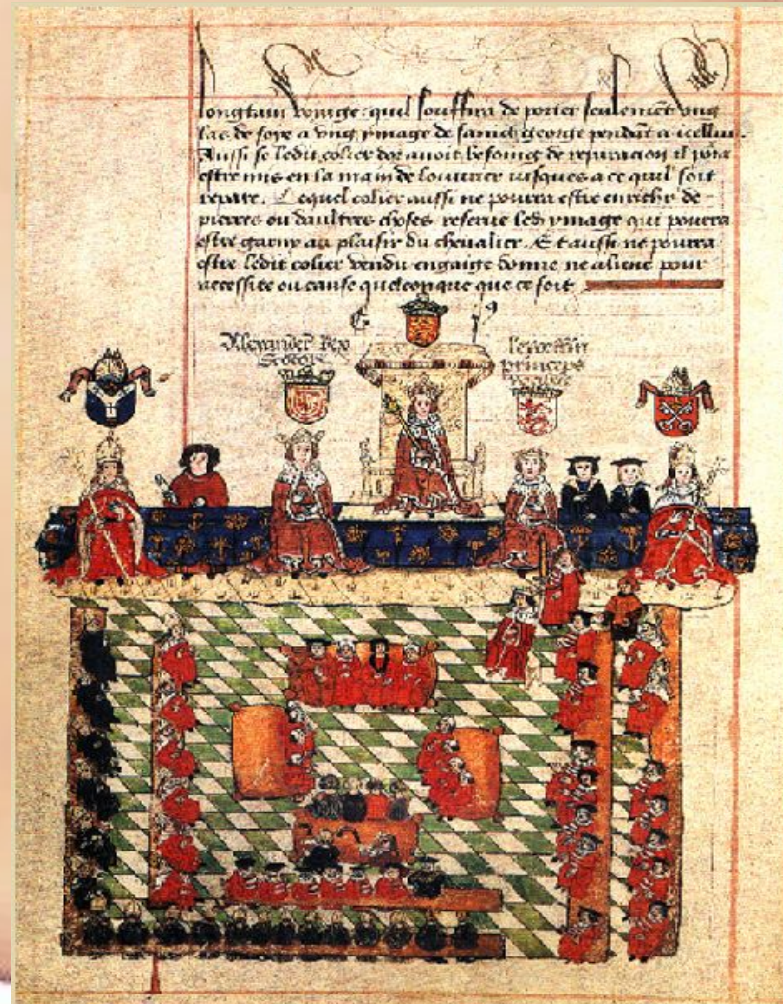 longtain voyage quil souffira de porter seulement ung
las de soye a ung ymage de sainct george pendāt a icelluy.
Aussi se ledit colier dor auoit besoing de reparacion il porra
estre mis en la main de louurier iusques a ce quil soit
repare. Lequel colier aussi ne pourra estre enrichi de
pierres ou daultres choses reserue led ymage qui pourra
estre garny au plaisir du cheualier. Et aussi ne pourra
estre ledit colier vendu engaige donne ne aliene pour
necessite ou cause quelconque que ce soit
Alexander Rex
Scotor
princeps